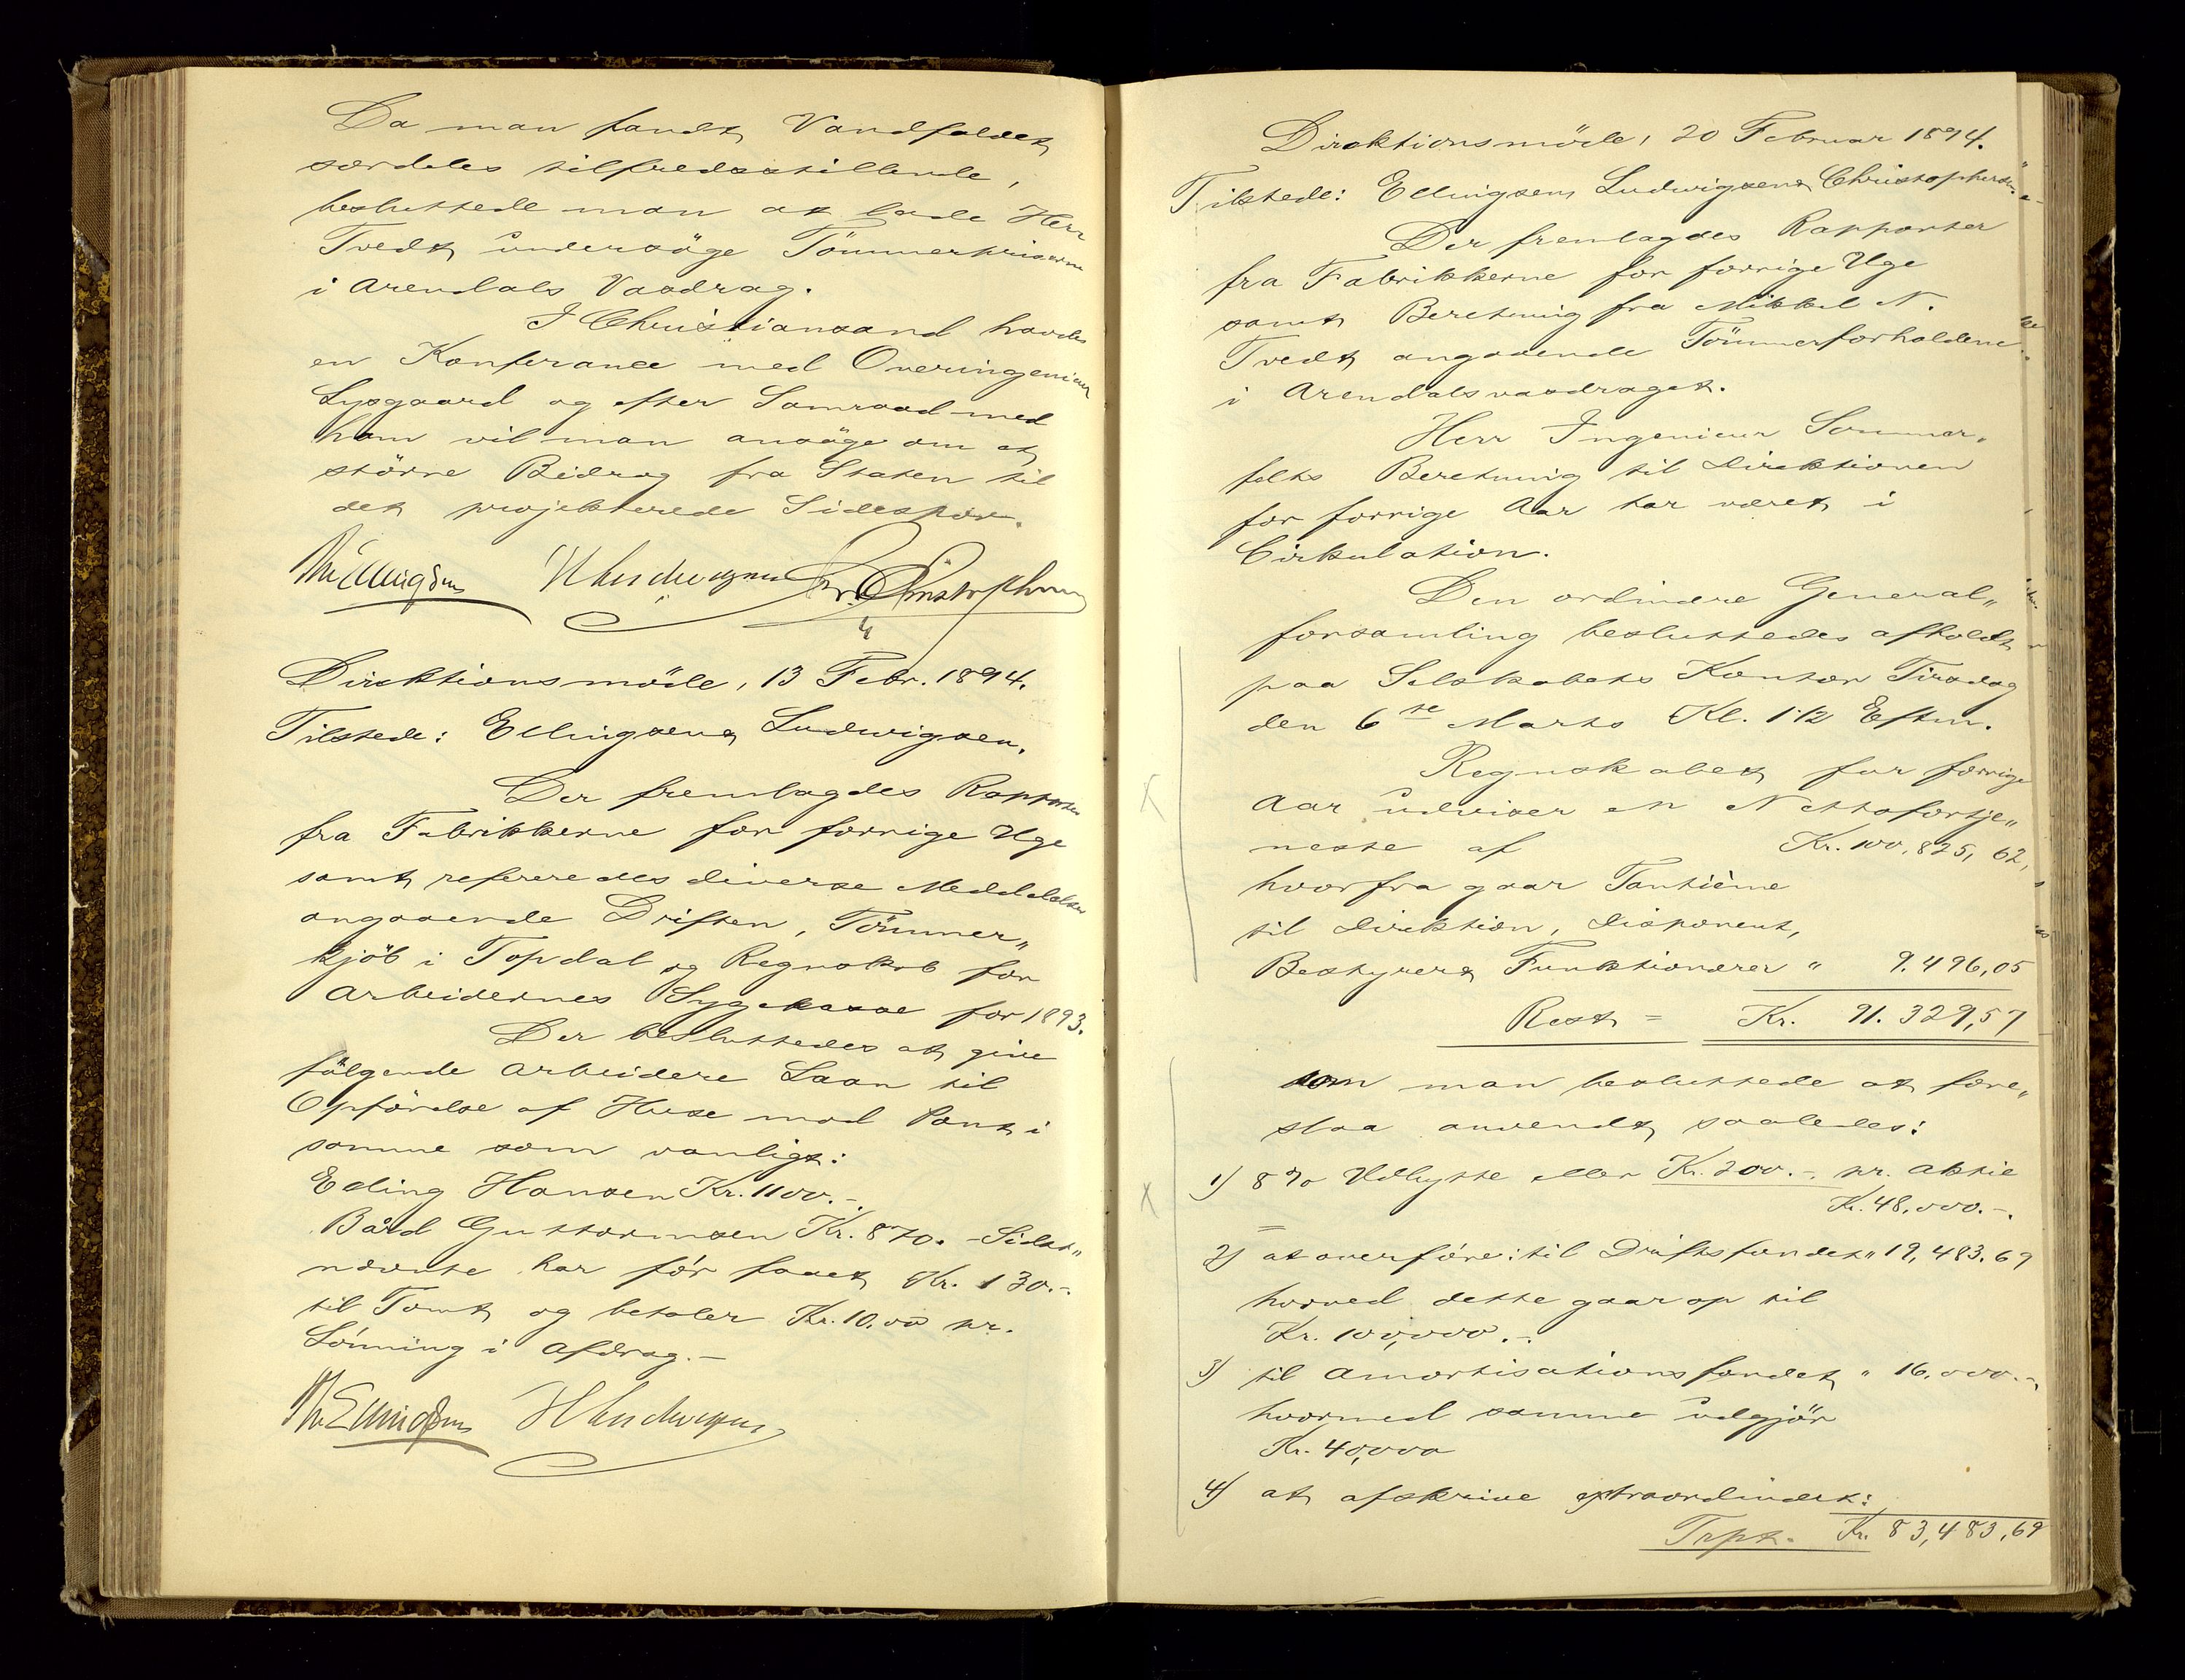 Da man fandt Vandfaldet
særdeles tilfredsstillende,
besluttede man at lade Herr
Tvedt undersöge Tömmerpriserne
i Arendals Vasdrag.
I Christiansand havdes
en Konferance med Overingenieur
Lysgaard og efter Samraad med
ham vil man ansöge om et
större Bidrag fra Staten til
det projekterede Sidespor.
Th Ellingsen H Ludwigsen Chr. Christophersen
Direktionsmöde, 13 Febr. 1894.
Tilstede: Ellingsen & Ludwigsen.
Der fremlagdes Rapporter
fra Fabrikkerne for forrige Uge
samt refereredes diverse Meddelelser
angaaende Driften, Tömmer„
kjöb i Topdal og Regnskab for
Arbeidernes Sygekasse for 1893.
Der besluttedes at give
fölgende Arbeidere Laan til
Opförelse af Huse mod Pant i
samme som vanligt:
Elling Hansen Kr. 1100.-
Bård Guttormsen Kr. 870.- Sidst„
nævnte har før faaet Kr. 130.-
til Tomt og betaler Kr. 10.00 pr.
Lönning i Afdrag.-
Th Ellingsen H Ludwigsen
Direktionsmöde, 20 Februar 1894.
Tilstede: Ellingsen, Ludwigsen & Christophersen.
Der fremlagdes Rapporter
fra Fabrikkerne for forrige Uge
samt Beretning fra Mikkel N.
Tvedt angaaende Tömmerforholdene
i Arendalsvasdraget.
Herr Ingenieur Sommer„
felts Beretning til Direktionen
for forrige Aar har været i
Cirkulation.
Den ordinære General„
forsamling besluttedes afholdt
paa Selskabets Kontor Tirsdag
den 6te Marts Kl. 1 1/2 Eftm.
Regnskabet for forrige
Aar udviser en Nettofortje„
neste af Kr. 100,825,62,
hvorfra gaar Tantième
til Direktion, Disponent,
Bestyrer & Funktionærer " 9.496,05
Rest = Kr. 91.329,57
som man besluttede at fore„
slaa anvendt saaledes:
1) 8% Udbytte eller Kr. 200.-. pr. Aktie
Kr. 48,000.-.
2) at overføre til Driftsfondet " 19,483.69
hvorved dette gaar op til
Kr. 100,000.-.
3) til Amortisationsfondet " 16,000.-
hvormed samme udgjör
Kr. 40,000
4) at afskrive extraordinært:
Trpt. Kr. 83,483,69